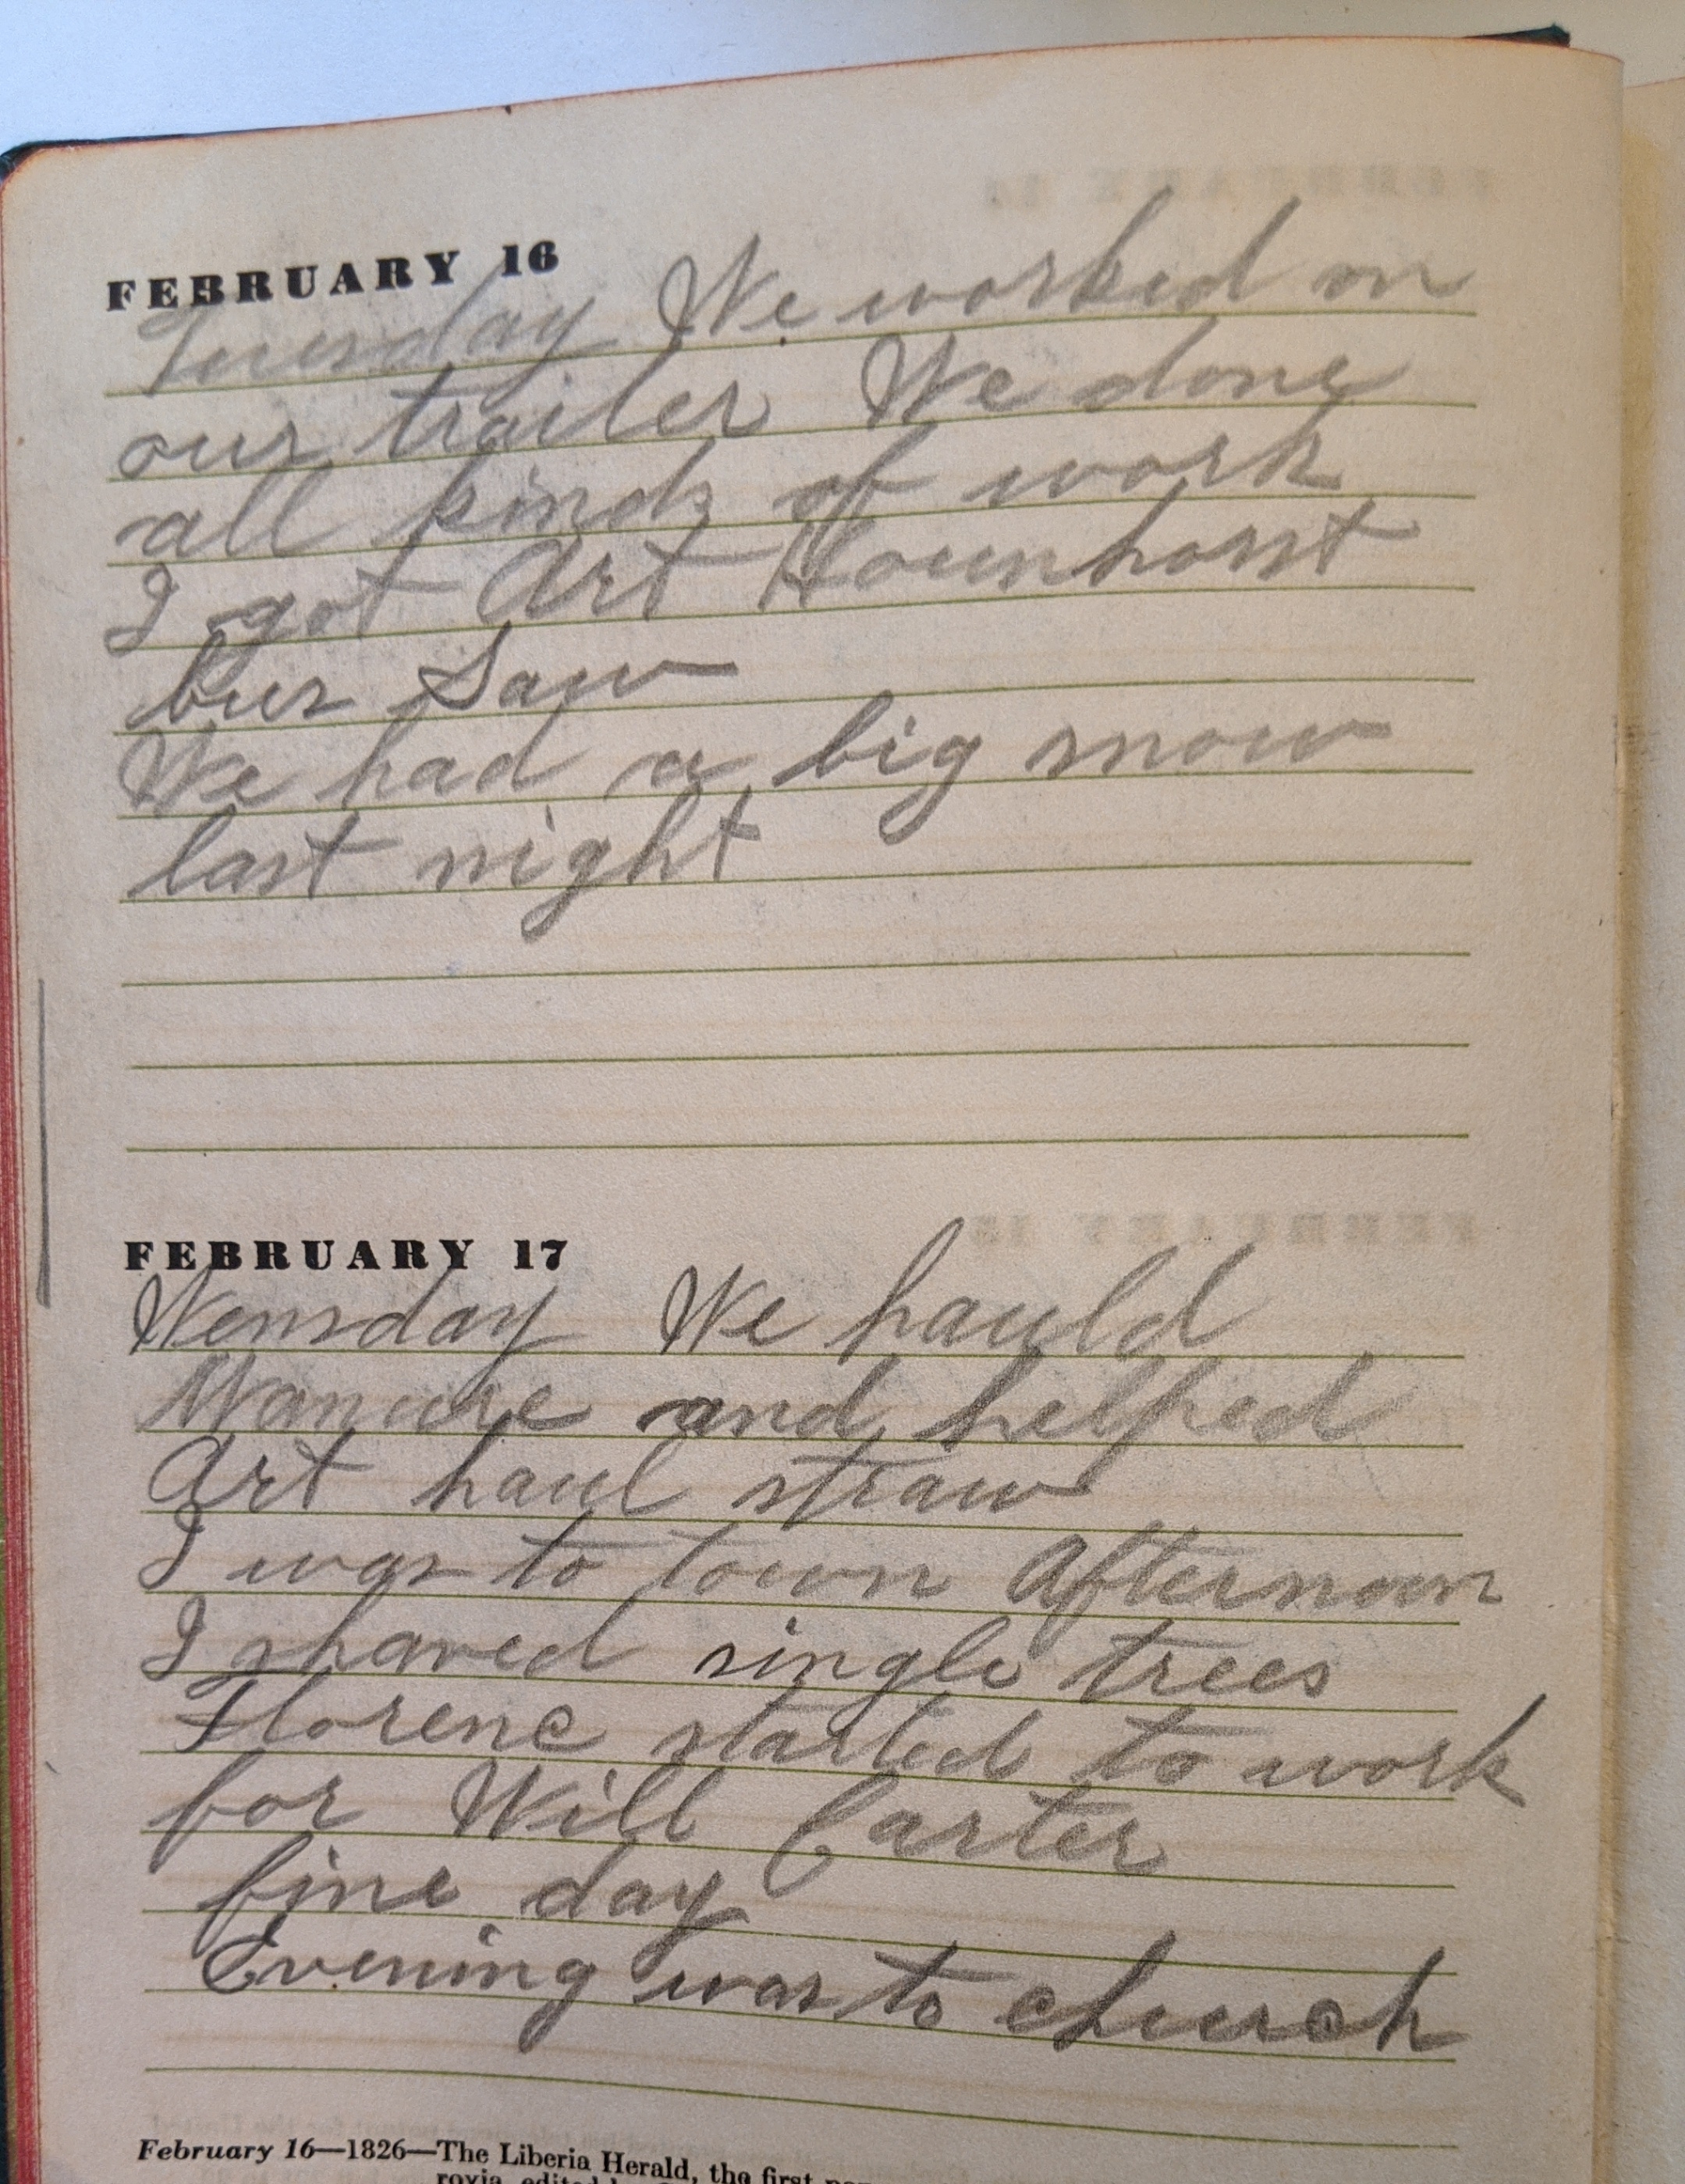 FEBRUARY 16
Tuesday We worked on
our trailer We done
all kinds of work
I got Art Hounhorst
bur Saw
We had a big snow
last night
FEBRUARY 17
Wensday We hauld
Manure and helped
Art haul straw
I was to town Afternoon
I shaved single trees
Florene started to work
for Will Carter
fine day
Evening was to church
February 16—1826—The Liberia Herald, the first